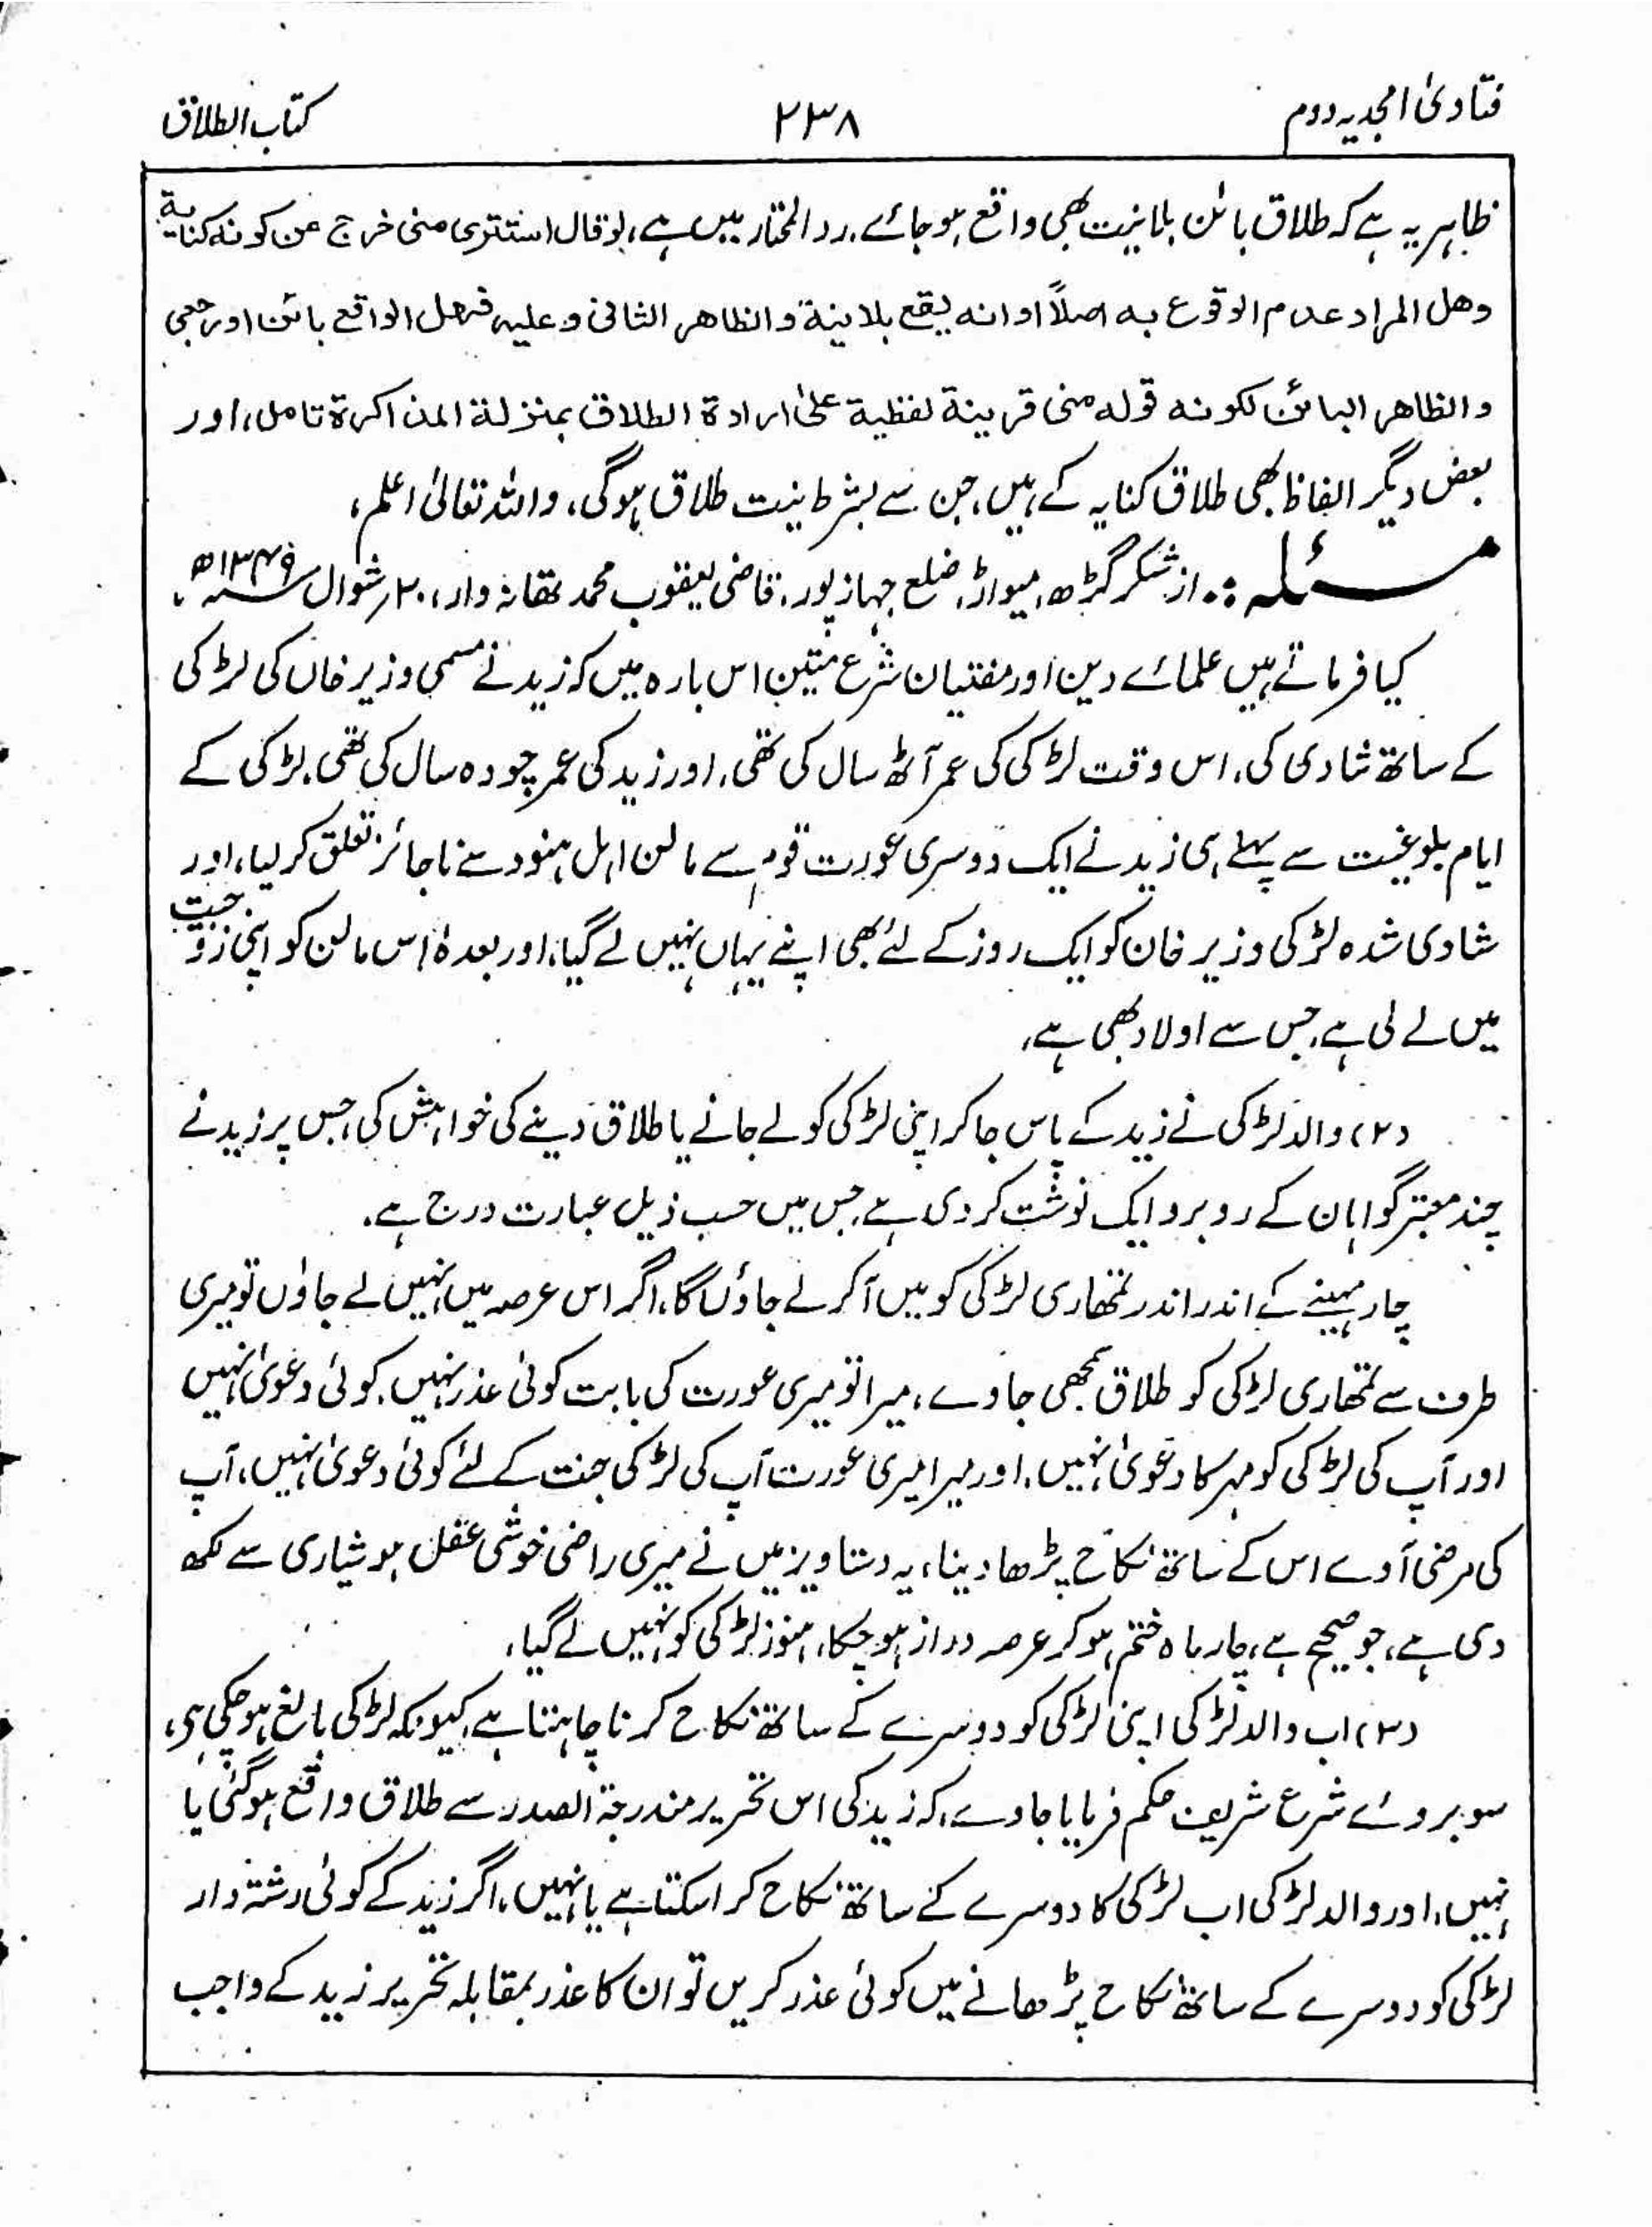 فتاویٰ امجدیہ دوم
۲۳۸
کتاب الطلاق
ظاہر یہ ہے کہ طلاق بائن بلا نیت بھی واقع ہو جائے. رد المختار میں ہے، لو قال استتری منی خرج عن کونه کنایة
وهل المراد عدم الوقوع به اصلاً او انه یقع بلا نیة والظاهر الثانی وعلیه فهل الواقع بائن او رجعی
والظاهر البائن لکونه قوله منی قرینة لفظیة علیٰ ارادة الطلاق بمنزلة المذاکرة تامل، اور
بعض دیگر الفاظ بھی طلاق کنایہ کے ہیں، جن سے بشرط نیت طلاق ہوگی، واللہ تعالیٰ اعلم،
مسئلہ :۔ از شکر گڑھ، میواڑ، ضلع جہاز پور، قاضی یعقوب محمد تھانہ وار، ۲۰ر شوال سنہ ۱۳۴۹ھ،
کیا فرماتے ہیں علمائے دین اور مفتیان شرع متین اس بارہ میں کہ زید نے مسمی وزیر خاں کی لڑکی
کے ساتھ شادی کی، اس وقت لڑکی کی عمر آٹھ سال کی تھی، اور زید کی عمر چودہ سال کی تھی، لڑکی کے
ایام بلوغیت سے پہلے ہی زید نے ایک دوسری عورت قوم سے مالن اہل ہنود سے ناجائز تعلق کر لیا، اور
شادی شدہ لڑکی وزیر خان کو ایک روز کے لئے بھی اپنے یہاں نہیں لے گیا، اور بعدہٗ اس مالن کو اپنی زوجیت
میں لے لی ہے، جس سے اولاد بھی ہے،
(۲) والد لڑکی نے زید کے پاس جا کر اپنی لڑکی کو لے جانے یا طلاق دینے کی خواہش کی، جس پر زید نے
چند معتبر گواہان کے روبرو ایک نوشت کر دی ہے، جس میں حسب ذیل عبارت درج ہے،
چار مہینے کے اندر اندر تمھاری لڑکی کو میں آکر لے جاؤں گا، اگر اس عرصہ میں نہیں لے جاؤں تو میری
طرف سے تمھاری لڑکی کو طلاق سمجھی جاوے، میرا تو میری عورت کی بابت کوئی عذر نہیں، کوئی دعویٰ نہیں
اور آپ کی لڑکی کو مہر کا دعویٰ نہیں، اور میرا میری عورت آپ کی لڑکی جنت کے لئے کوئی دعویٰ نہیں، آپ
کی مرضی آوے اس کے ساتھ نکاح پڑھا دینا، یہ دستاویز میں نے میری راضی خوشی عقل ہوشیاری سے لکھ
دی ہے، جو صحیح ہے، چار ماہ ختم ہو کر عرصہ دراز ہو چکا، ہنوز لڑکی کو نہیں لے گیا،
(۳) اب والد لڑکی اپنی لڑکی کو دوسرے کے ساتھ نکاح کرنا چاہتا ہے، کیونکہ لڑکی بالغ ہو چکی ہی،
سو بروئے شرع شریف حکم فرمایا جاوے، کہ زید کی اس تحریر مندرجۃ الصدر سے طلاق واقع ہوگئی یا
نہیں، اور والد لڑکی اب لڑکی کا دوسرے کے ساتھ نکاح کرا سکتا ہے یا نہیں، اگر زید کے کوئی رشتہ دار
لڑکی کو دوسرے کے ساتھ نکاح پڑھانے میں کوئی عذر کریں تو ان کا عذر بمقابلہ تحریر زید کے واجب